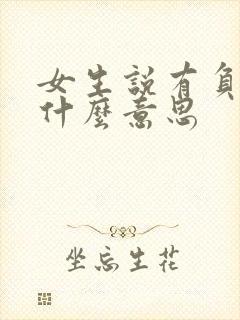 女生說有負
什麼意思
坐忘生花